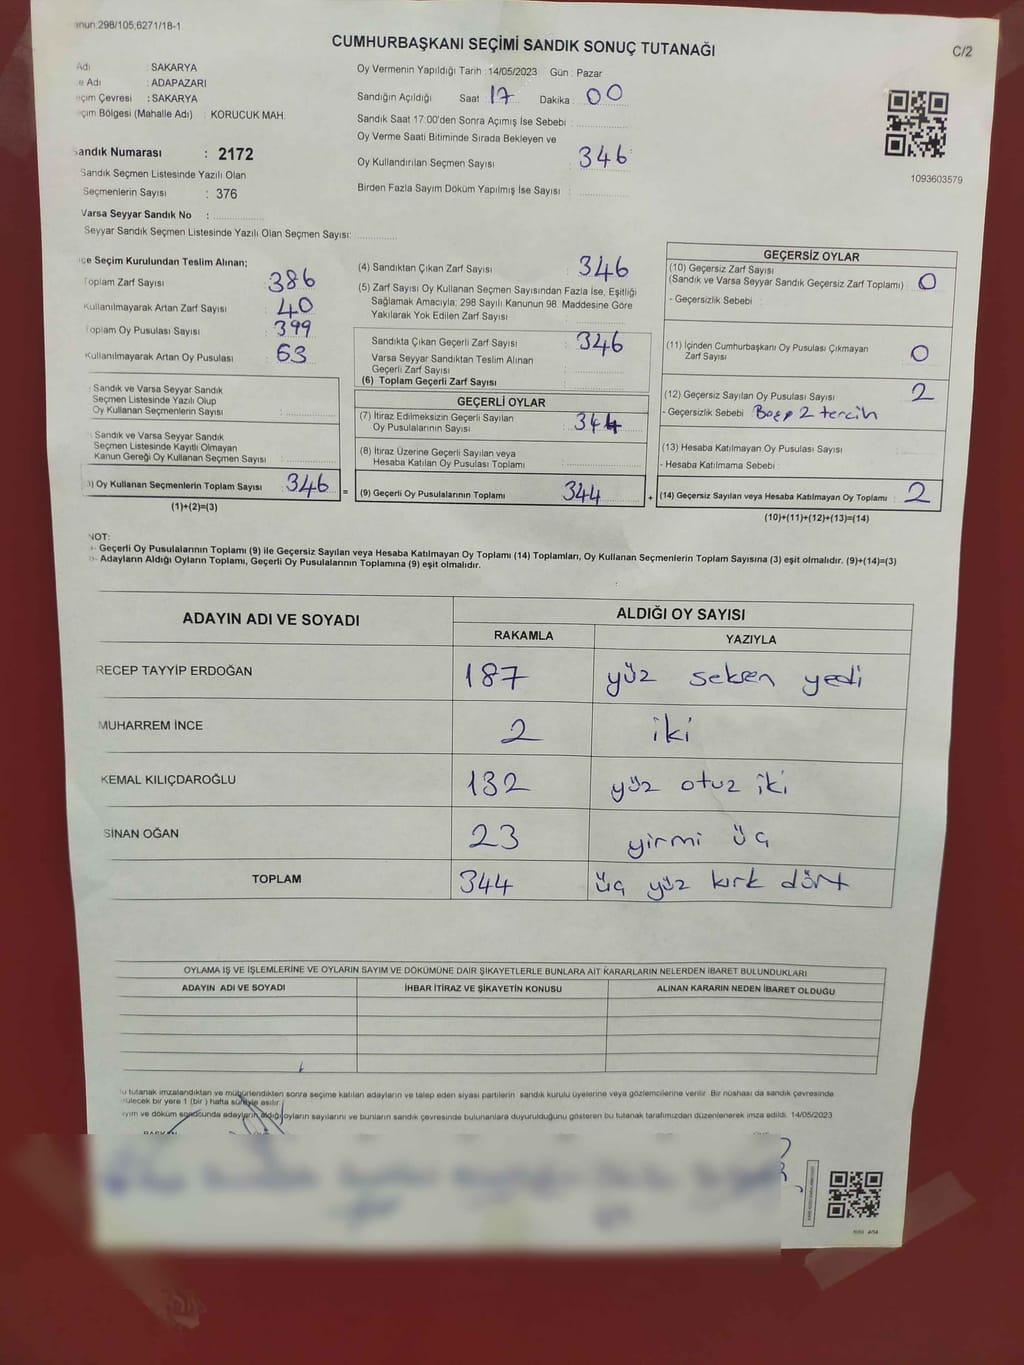 anun:298/105,6271/18-1
CUMHURBAŞKANI SEÇİMİ SANDIK SONUÇ TUTANAĞI
C/2
Adı : SAKARYA
e Adı : ADAPAZARI
eçim Çevresi : SAKARYA
çim Bölgesi (Mahalle Adı) : KORUCUK MAH.
Sandık Numarası : 2172
Sandık Seçmen Listesinde Yazılı Olan
Seçmenlerin Sayısı : 376
Varsa Seyyar Sandık No :
Seyyar Sandık Seçmen Listesinde Yazılı Olan Seçmen Sayısı:
Oy Vermenin Yapıldığı Tarih : 14/05/2023 Gün : Pazar
Sandığın Açıldığı Saat 17 Dakika : 00
Sandık Saat 17:00'den Sonra Açılmış İse Sebebi :
Oy Verme Saati Bitiminde Sırada Bekleyen ve
Oy Kullandırılan Seçmen Sayısı : 346
Birden Fazla Sayım Döküm Yapılmış İse Sayısı :
1093603579
çe Seçim Kurulundan Teslim Alınan;
Toplam Zarf Sayısı : 386
Kullanılmayarak Artan Zarf Sayısı : 40
Toplam Oy Pusulası Sayısı : 399
Kullanılmayarak Artan Oy Pusulası : 63
Sandık ve Varsa Seyyar Sandık
Seçmen Listesinde Yazılı Olup
Oy Kullanan Seçmenlerin Sayısı :
Sandık ve Varsa Seyyar Sandık
Seçmen Listesinde Kayıtlı Olmayan
Kanun Gereği Oy Kullanan Seçmen Sayısı :
) Oy Kullanan Seçmenlerin Toplam Sayısı 346 =
(1)+(2)=(3)
(4) Sandıktan Çıkan Zarf Sayısı : 346
(5) Zarf Sayısı Oy Kullanan Seçmen Sayısından Fazla İse, Eşitliği
Sağlamak Amacıyla; 298 Sayılı Kanunun 98. Maddesine Göre
Yakılarak Yok Edilen Zarf Sayısı :
Sandıkta Çıkan Geçerli Zarf Sayısı : 346
Varsa Seyyar Sandıktan Teslim Alınan
Geçerli Zarf Sayısı :
(6) Toplam Geçerli Zarf Sayısı :
GEÇERLİ OYLAR
(7) İtiraz Edilmeksizin Geçerli Sayılan
Oy Pusulalarının Sayısı : 344
(8) İtiraz Üzerine Geçerli Sayılan veya
Hesaba Katılan Oy Pusulası Toplamı :
(9) Geçerli Oy Pusulalarının Toplamı : 344 +
GEÇERSİZ OYLAR
(10) Geçersiz Zarf Sayısı
(Sandık ve Varsa Seyyar Sandık Geçersiz Zarf Toplamı) : 0
- Geçersizlik Sebebi :
(11) İçinden Cumhurbaşkanı Oy Pusulası Çıkmayan
Zarf Sayısı : 0
(12) Geçersiz Sayılan Oy Pusulası Sayısı : 2
- Geçersizlik Sebebi : 2 tercih
(13) Hesaba Katılmayan Oy Pusulası Sayısı :
- Hesaba Katılmama Sebebi :
(14) Geçersiz Sayılan veya Hesaba Katılmayan Oy Toplamı : 2
(10)+(11)+(12)+(13)=(14)
NOT:
- Geçerli Oy Pusulalarının Toplamı (9) ile Geçersiz Sayılan veya Hesaba Katılmayan Oy Toplamı (14) Toplamları, Oy Kullanan Seçmenlerin Toplam Sayısına (3) eşit olmalıdır. (9)+(14)=(3)
- Adayların Aldığı Oyların Toplamı, Geçerli Oy Pusulalarının Toplamına (9) eşit olmalıdır.
ADAYIN ADI VE SOYADI
ALDIĞI OY SAYISI
RAKAMLA YAZIYLA
RECEP TAYYİP ERDOĞAN 187 yüz seksen yedi
MUHARREM İNCE 2 iki
KEMAL KILIÇDAROĞLU 132 yüz otuz iki
SİNAN OĞAN 23 yirmi üç
TOPLAM 344 üç yüz kırk dört
OYLAMA İŞ VE İŞLEMLERİNE VE OYLARIN SAYIM VE DÖKÜMÜNE DAİR ŞİKAYETLERLE BUNLARA AİT KARARLARIN NELERDEN İBARET BULUNDUKLARI
ADAYIN ADI VE SOYADI İHBAR İTİRAZ VE ŞİKAYETİN KONUSU ALINAN KARARIN NEDEN İBARET OLDUĞU
u tutanak imzalandıktan ve mühürlendikten sonra seçime katılan adayların ve talep eden siyasi partilerin sandık kurulu üyelerine veya gözlemcilerine verilir. Bir nüshası da sandık çevresinde
ülecek bir yere 1 (bir) hafta süreyle asılır.
ayım ve döküm sonucunda adayların aldığı oyların sayılarını ve bunların sandık çevresinde bulunanlara duyurulduğunu gösteren bu tutanak tarafımızdan düzenlenerek imza edildi. 14/05/2023
BAŞKAN